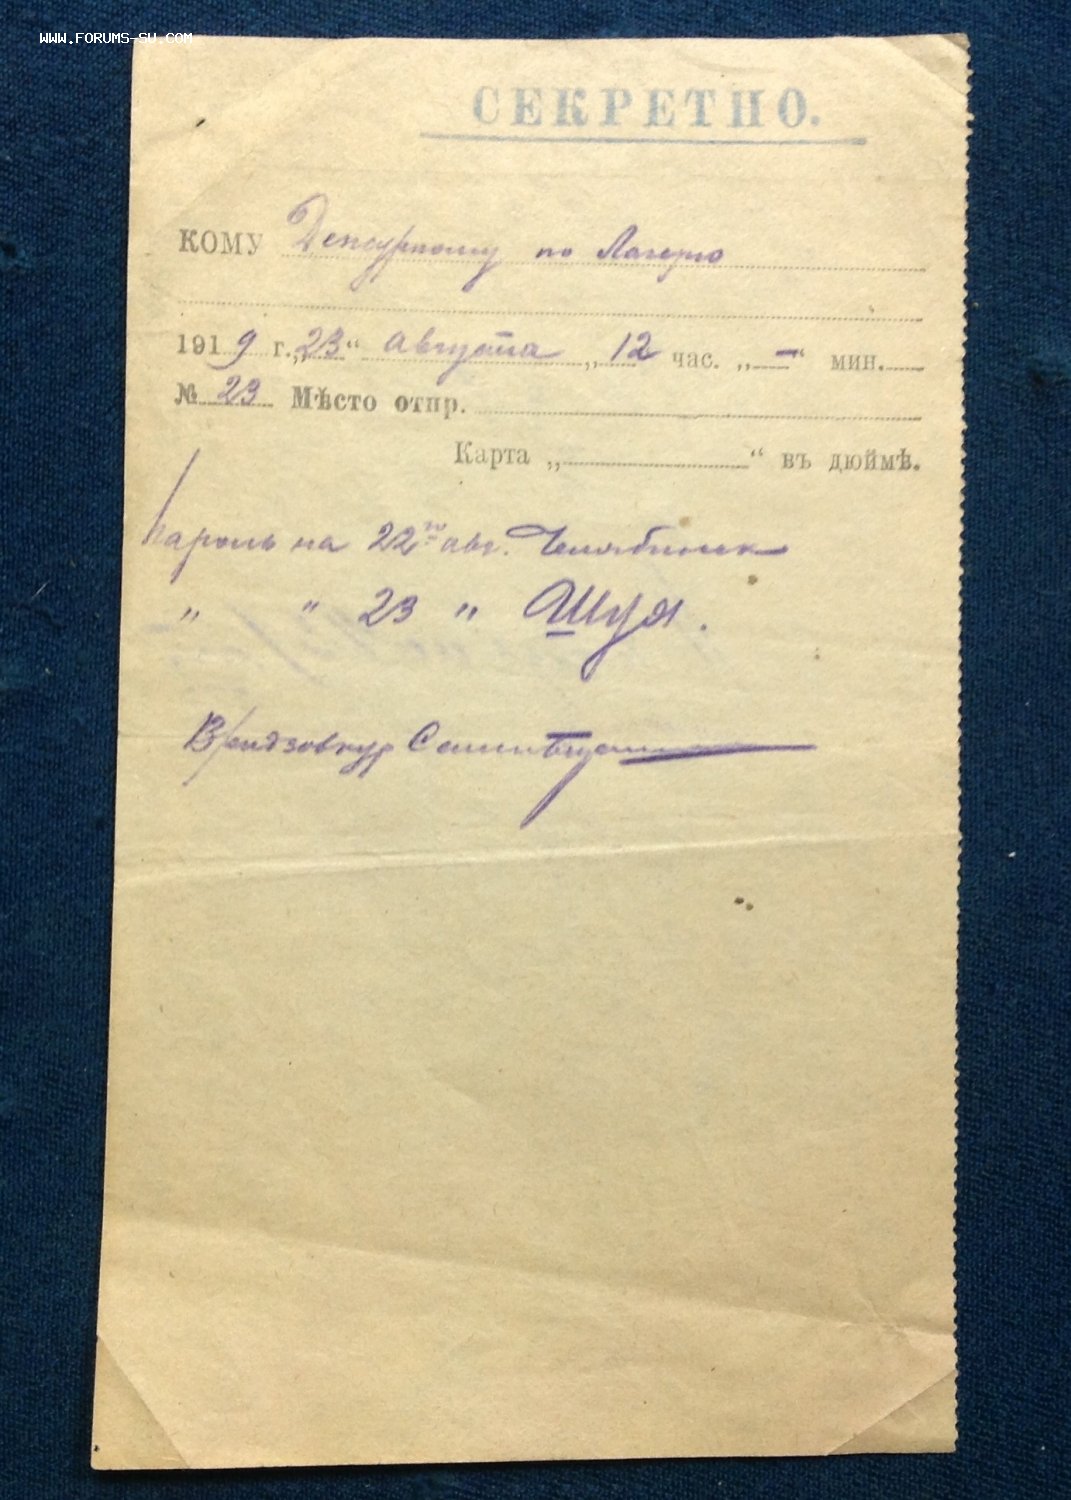 WWW.FORUMS-SU.COM
СЕКРЕТНО.
КОМУ Дежурному по Лагерю
1919 г. „23“ Августа „12 час. „—“ мин.
№ 23 Мѣсто отпр.
Карта „ “ въ дюймѣ.
Пароль на 22го авг. Челябинск
„ „ 23 „ Шуя.